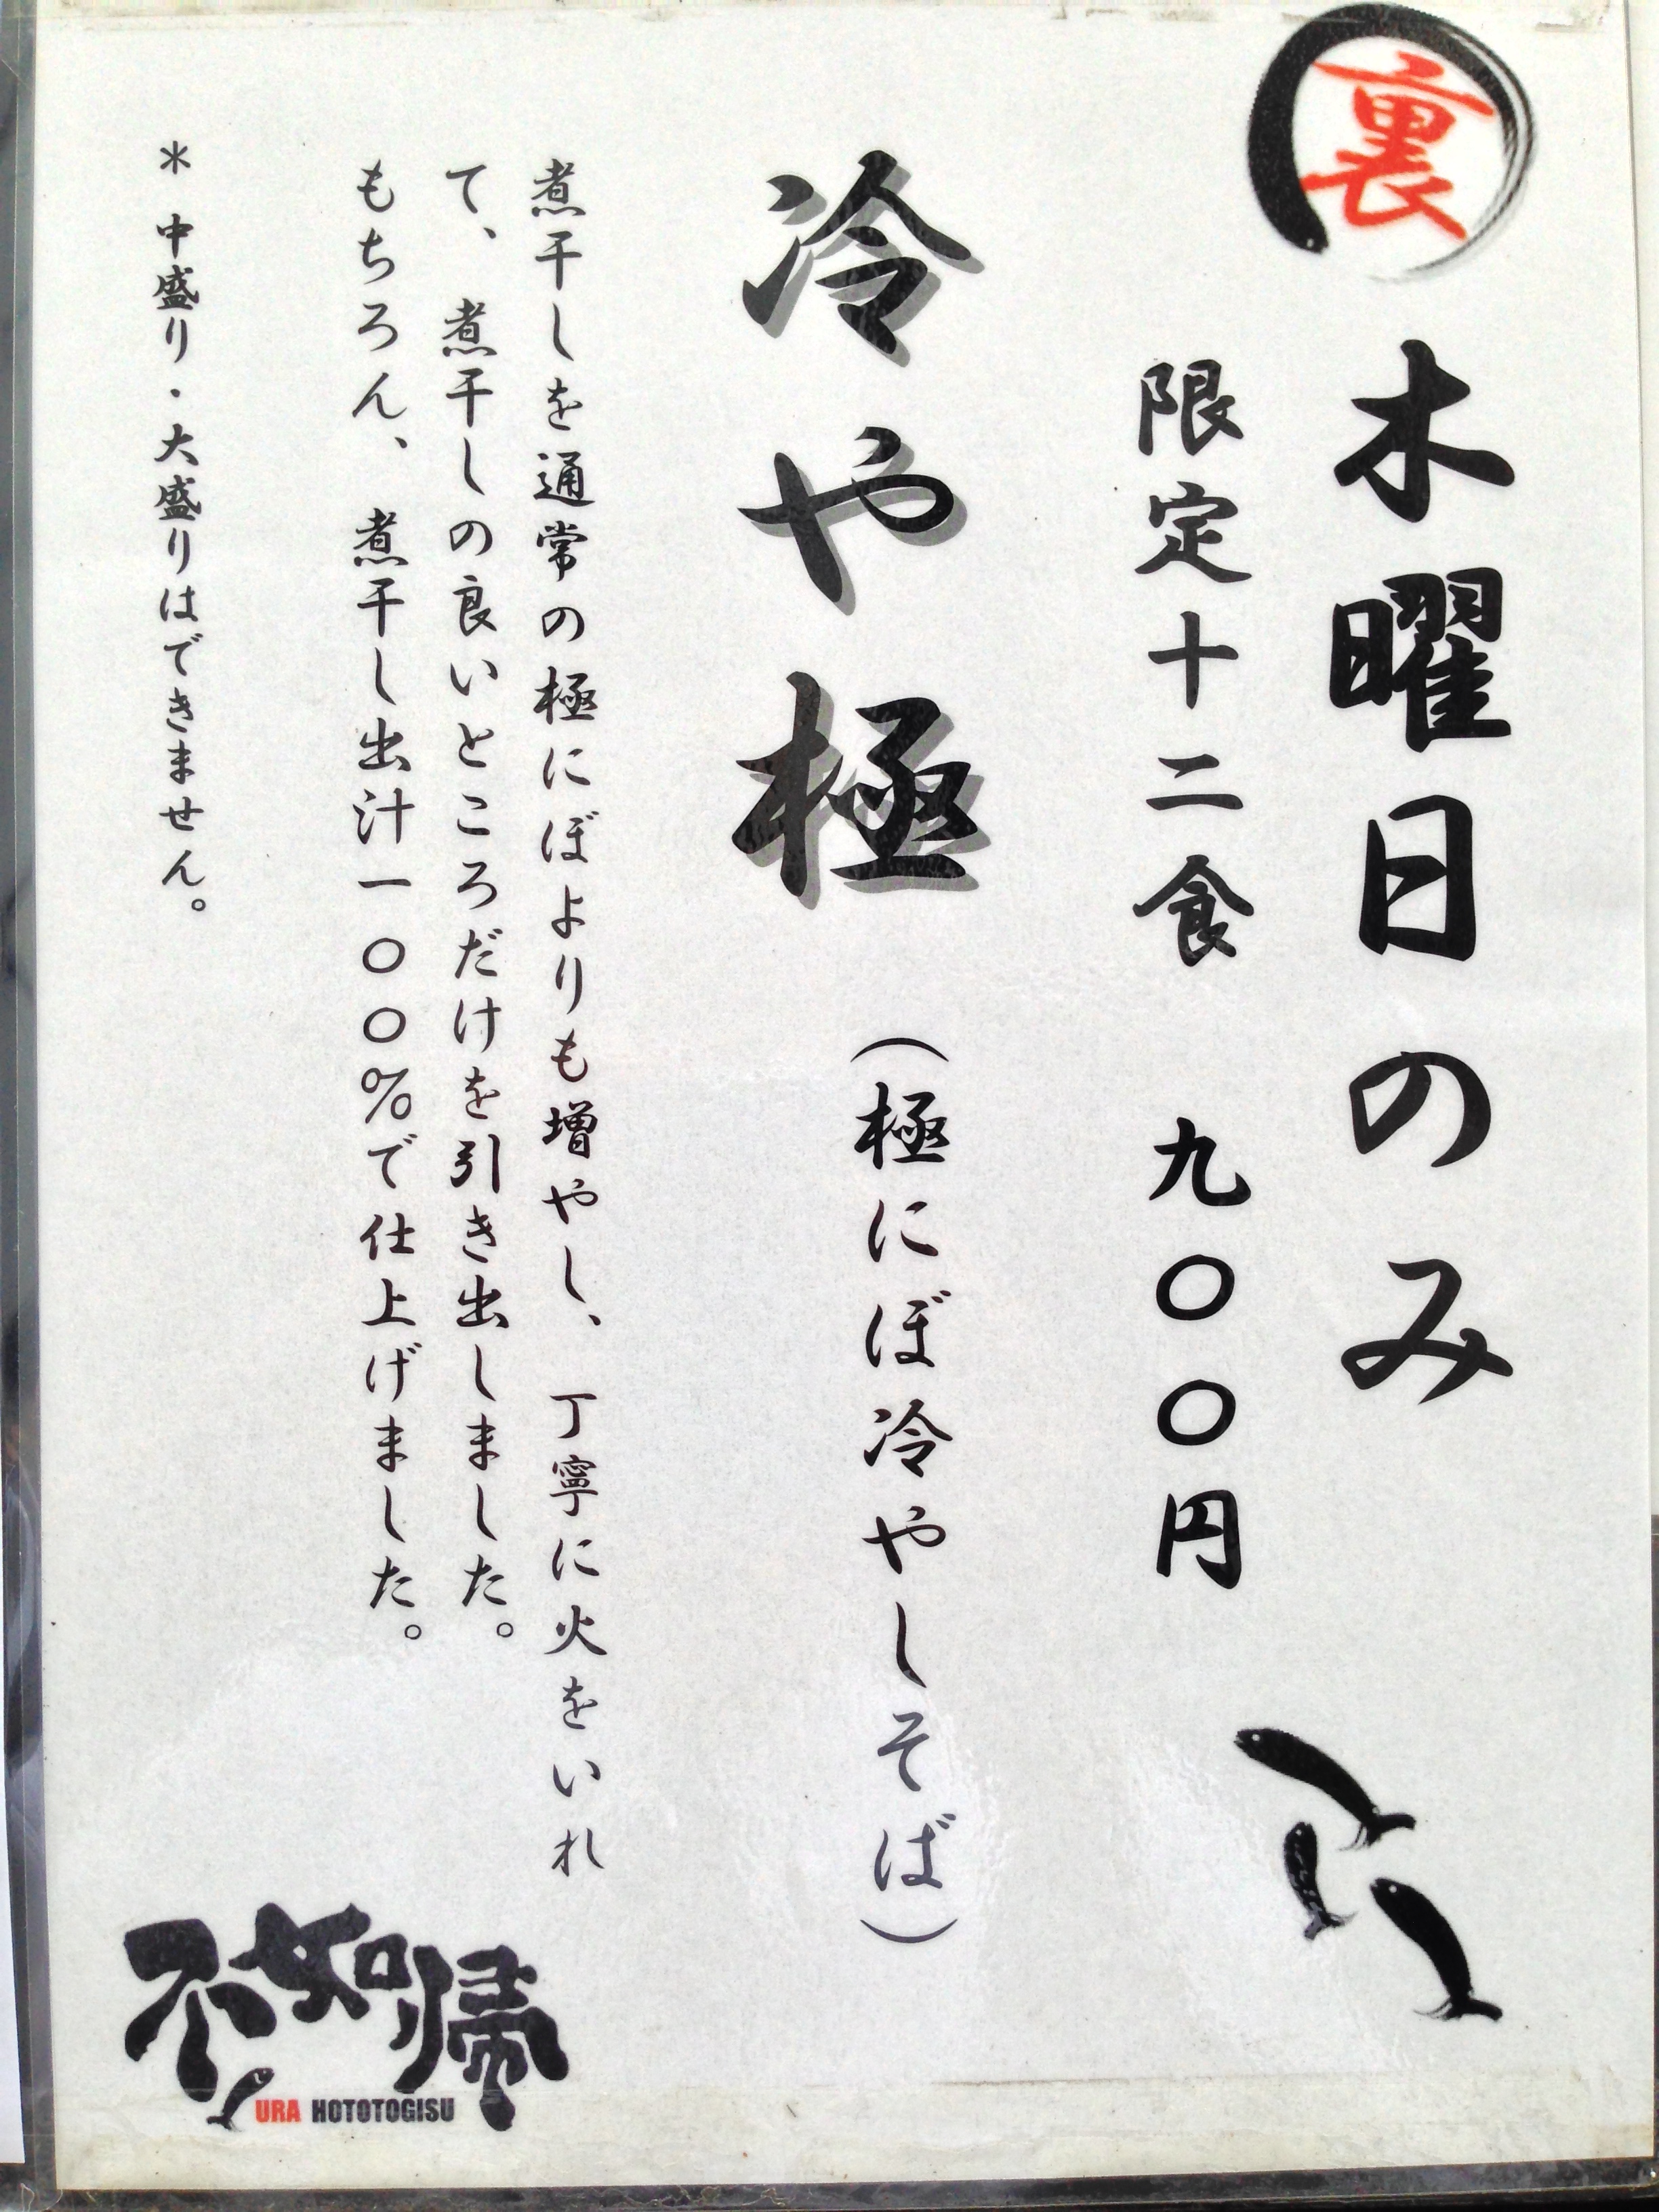 裏
木曜日のみ
限定十二食 九〇〇円
冷や極(極にぼ冷やしそば)
煮干しを通常の極にぼよりも増やし、丁寧に火をいれ
て、煮干しの良いところだけを引き出しました。
もちろん、煮干し出汁一〇〇％で仕上げました。
＊ 中盛り・大盛りはできません。
不如帰
URA HOTOTOGISU